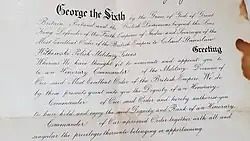 George the Sixth by the Grace of God of Great
Britain, Ireland and the British Dominions beyond the Seas
King, Defender of the Faith, Emperor of India and Sovereign of the
Most Excellent Order of the British Empire to Colonel
Greeting
Whereas We have thought fit to nominate and appoint you to
be an Honorary Commander of the Military Division of
Our said Most Excellent Order of the British Empire We do
by these presents grant unto you the Dignity of an Honorary
Commander of Our said Order and hereby authorise you
to have hold and enjoy the said Dignity and Rank of an Honorary
Commander of Our aforesaid Order together with all and
singular the privileges thereunto belonging or appertaining